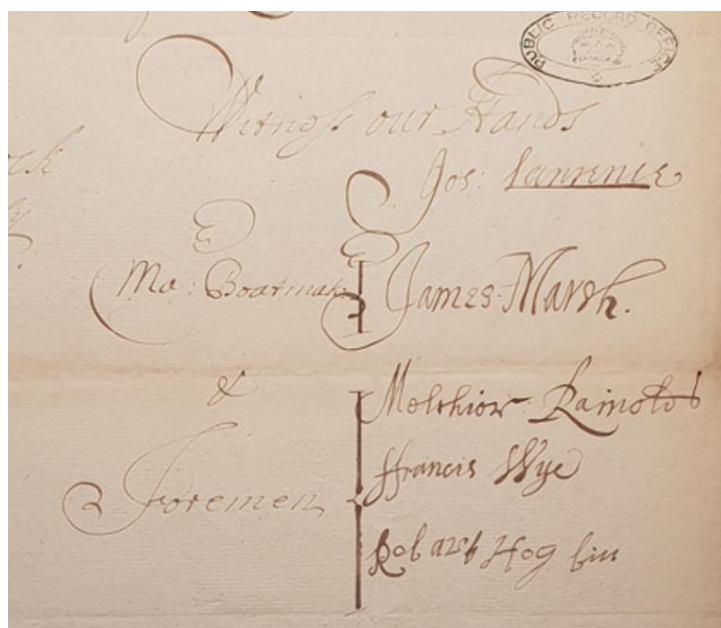 PUBLIC RECORD OFFICE
Witness our Hands
Jos: Lawrence
Ma: Boatman
James Marsh.
&
Melchior
Foremen
ffrancis Wye
Robart Hog bin